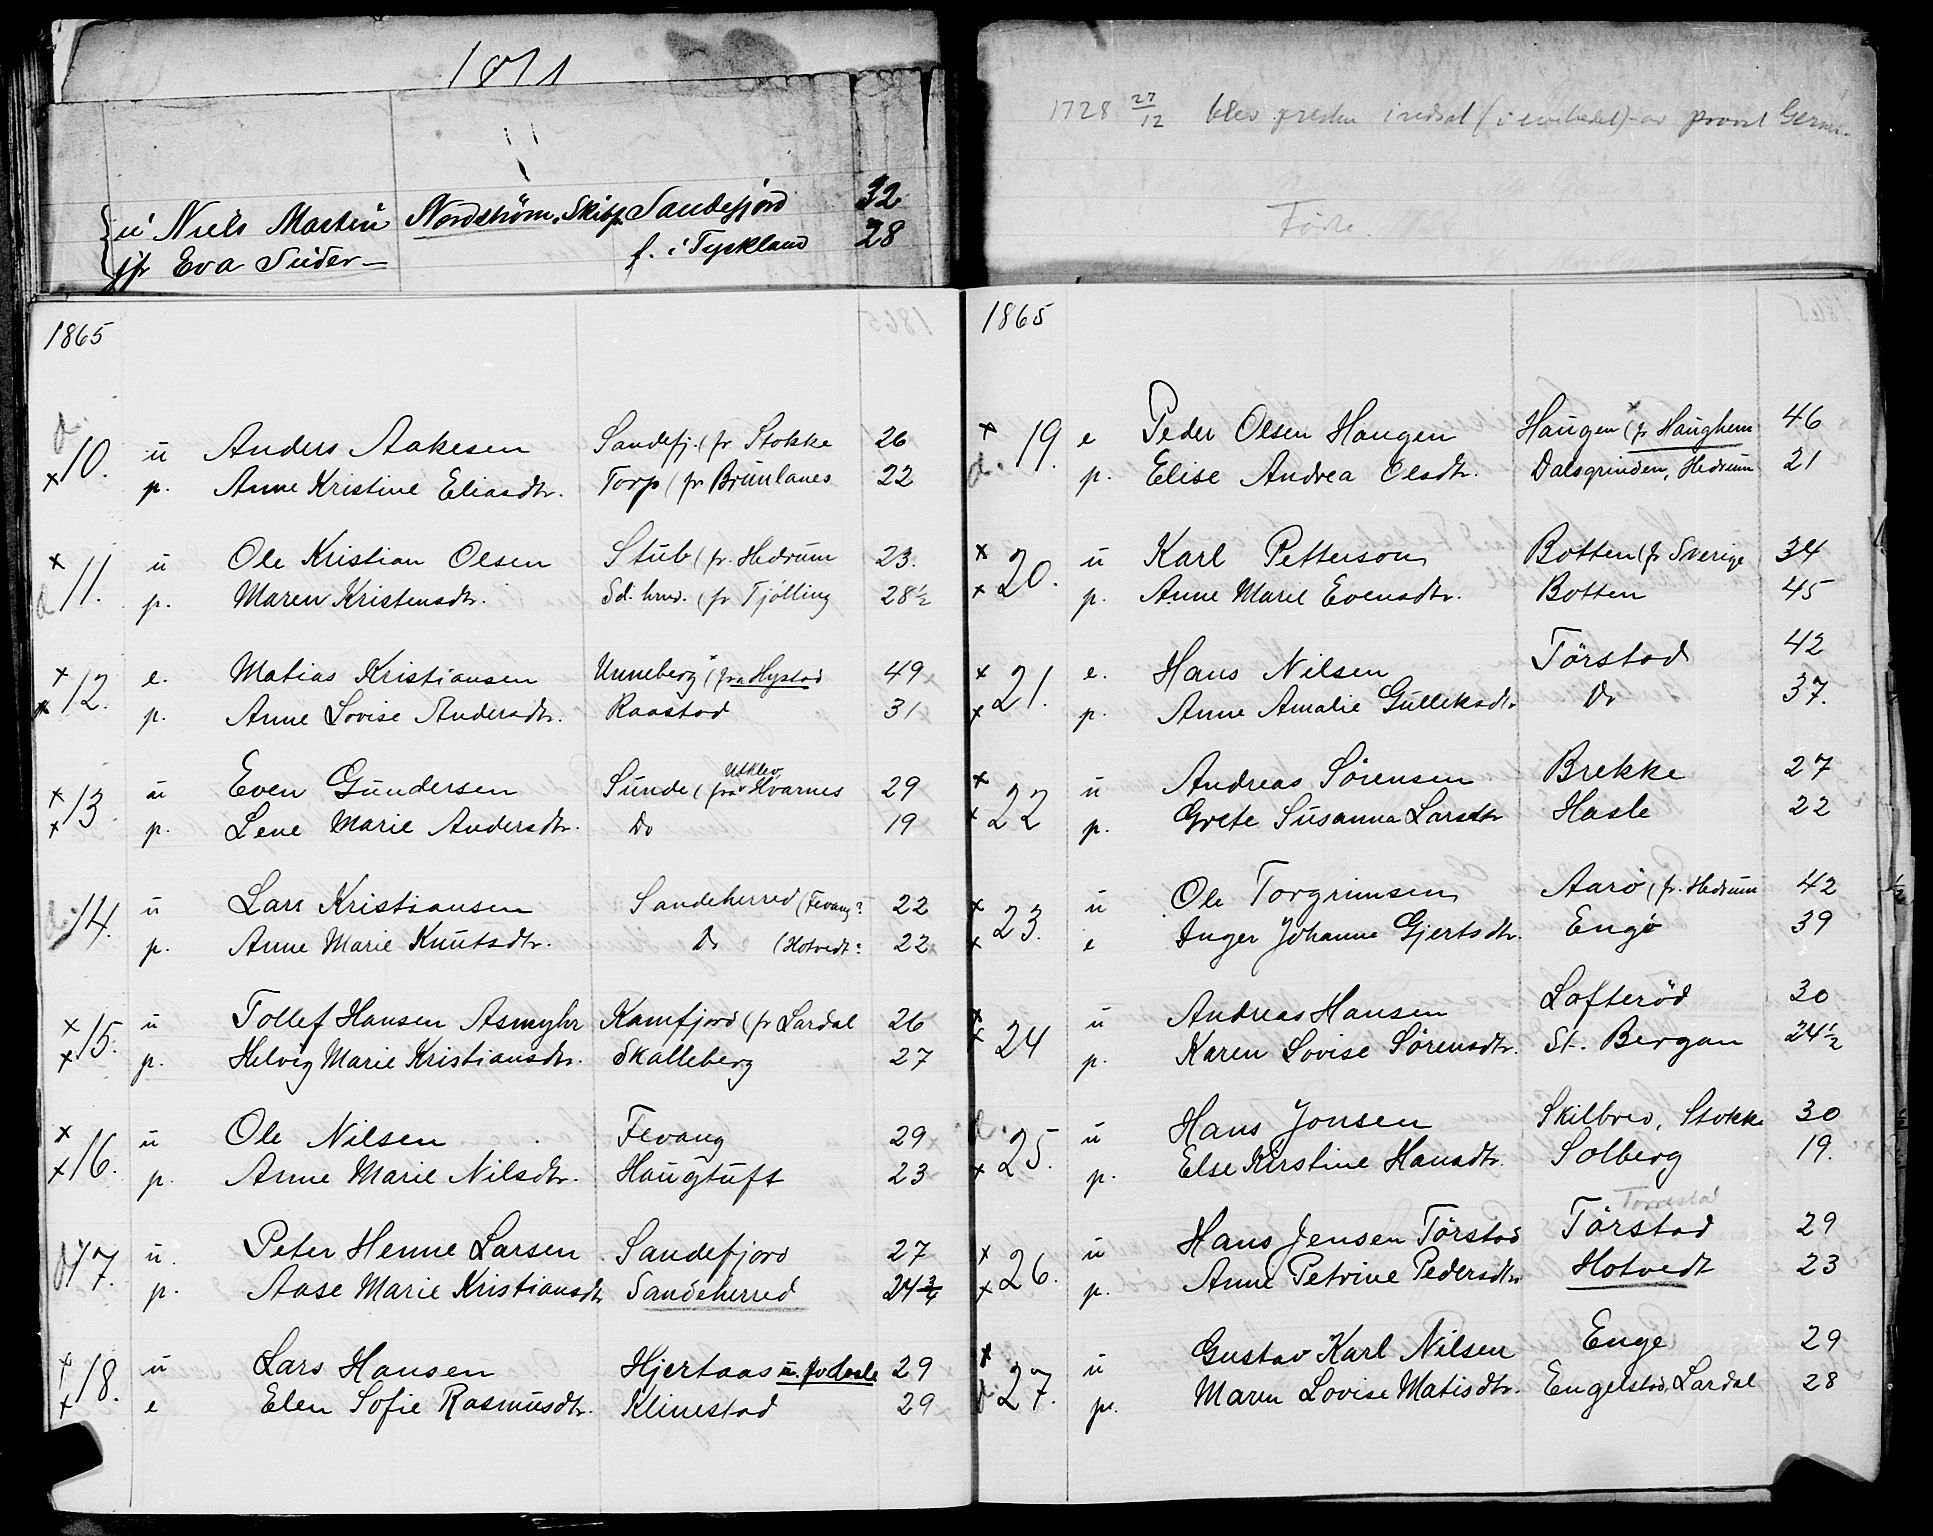 1871
u Niels Martin Nordstrøm, Skibsf. Sandefjord 32
jfr Eva Suder f. i Tyskland 28
1865
10. u Anders Aakesen Sandefj. (fr Stokke 26
p. Anne Kristine Eliasdtr. Torp (fr Brunlanes 22
11. u Ole Kristian Olsen Stub (fr. Hedrum 23.
p. Maren Kristensdtr. Sd. hrred. (fr Tjølling 28½
12. e. Matias Kristiansen Unneberg (fra Hystad 49
p. Anne Lovise Andersdtr. Raastad 31
Utklev
13 u Even Gundersen Sunde (fra Hvarnes 29
p. Lene Marie Andersdtr. Do 19
14. u Lars Kristiansen Sandeherred (Fevang? 22
p. Anne Marie Knutsdtr. Do (Hotvedt? 22
15. u Tollef Hansen Asmyhr Kamfjord (fr Lardal 26
p. Helvig Marie Kristiansdtr. Skalleberg 27
16. u Ole Nilsen Fevang 29
p. Anne Marie Nilsdtr. Haugtuft 23
17. u. Peter Henne Larsen Sandefjord 27
p. Aase Marie Kristiansdtr Sandeherred 24¾
18. u Lars Hansen Hjertaas 29
e Elen Sofie Rasmusdtr. Klinestad 29
1728 27/12 blev præsten indsat ( av provst
Fødte.
1865
19. e Peder Olsen Haugen Haugen (fr Haughem 46
p. Elise Andrea Olsdtr. Dalsgrinden, Hedrum 21
20. u Karl Petterson Botten (fr Sverige 34
p. Anne Marie Evensdtr. Botten 45
21. e. Hans Nilsen Tørstad 42
p. Anne Amalie Gulleksdtr Do 37.
22 u Andreas Sørensen Brekke 27
p. Grete Susanna Larsdtr Hasle 22
23. u Ole Torgrimsen Aarø (fr. Hedrum 42
e Inger Johanne Gjertsdtr. Engø 39
24 u Andreas Hansen Lofterød 30
p. Karen Lovise Sørensdtr. St. Bergan 24½
25. u Hans Jonsen Skilbred, Stokke 30
p. Else Kirstine Hansdtr. Solberg 19.
Torrestad
26. u Hans Jensen Tørstad Tørstad 29
p. Anne Petrine Pedersdtr Hotvedt 23
27. u Gustav Karl Nilsen Enge 29
p. Maren Lovise Matisdtr. Engelstad, Lardal 28